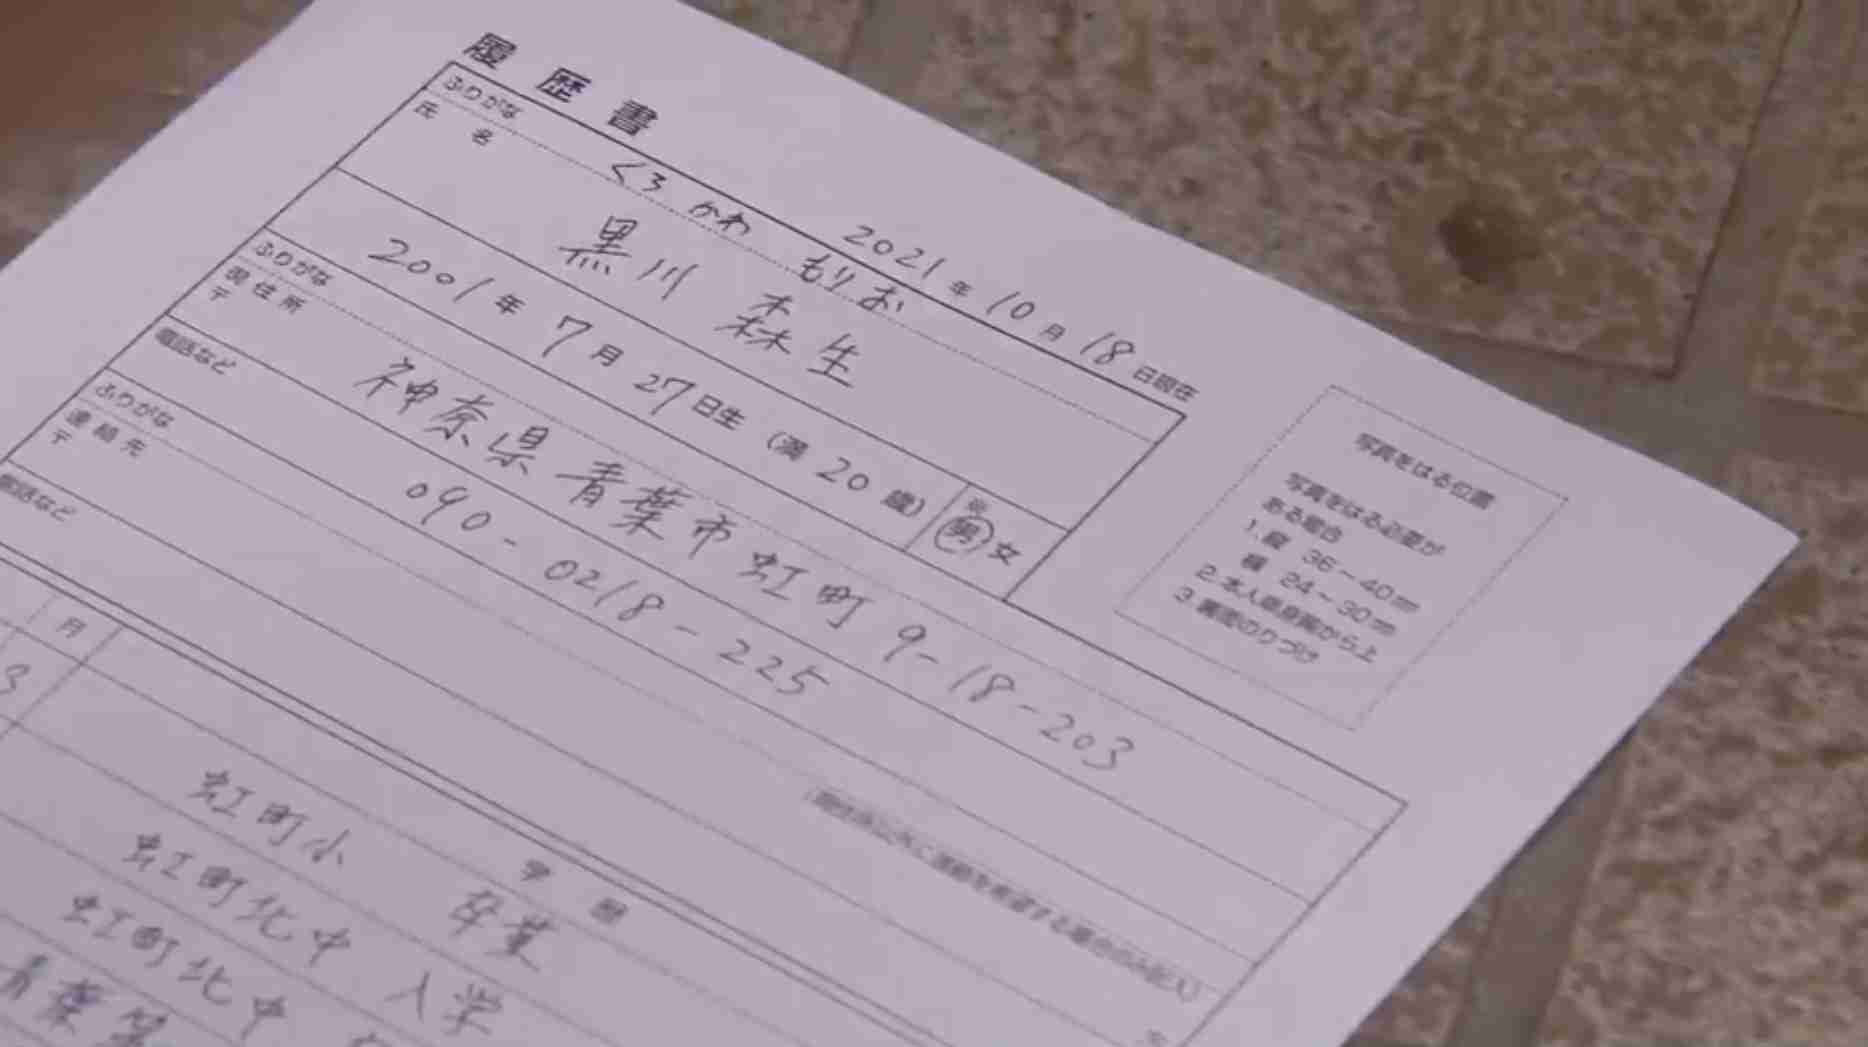 履歴書
2021年10月18日現在
ふりがな くろかわ もりお
氏名 黒川 森生
2001年7月27日生 (満20歳) ※ 男・女
ふりがな
現住所 〒
神奈県青葉市虹町9-18-203
電話など 090-0218-225
ふりがな
連絡先 〒
(現住所以外に連絡を希望する場合のみ記入)
電話など
写真をはる位置
写真をはる必要が
ある場合
1.縦 36~40mm
横 24~30mm
2.本人単身胸から上
3.裏面のりづけ
月
学歴
3 虹町小 卒業
虹町北中 入学
虹町北中
青葉第